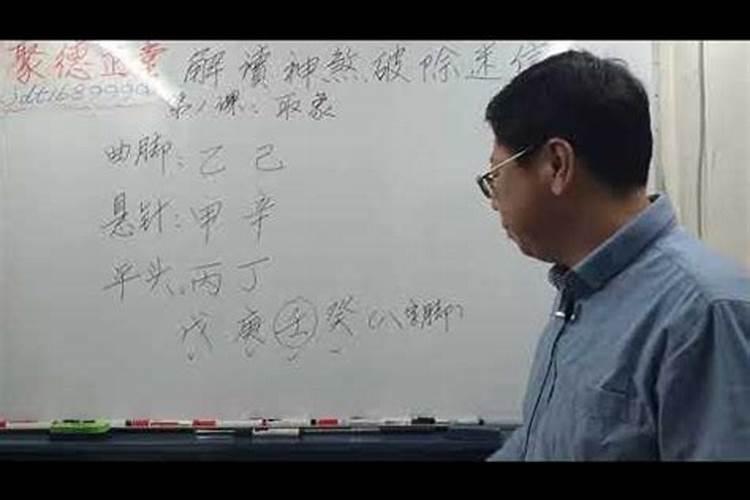 聚德正业 解读神煞破除迷信
jdt1689999
第1课：取象
曲脚：乙 己
悬针：甲 辛
平头：丙 丁
戊 庚 壬 癸（八字脚）